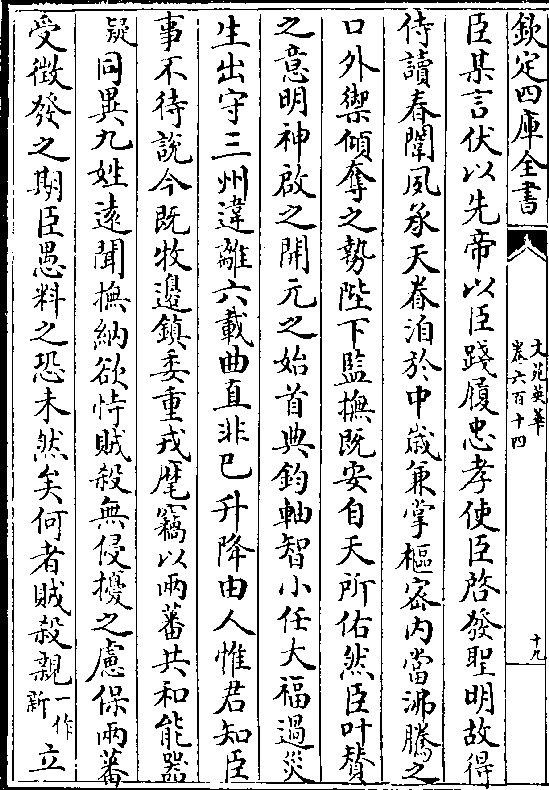 欽定四庫全書
文苑英華
卷六百十四
十九
臣某言伏以先帝以臣踐履忠孝使臣啓發聖明故得
侍讀春闈夙承天眷洎於中歲兼掌樞密内當沸騰之
口外禦傾奪之勢陛下監撫既安自天所佑然臣叶賛
之意明神啟之開元之始首典鈞軸智小任大福過災
生出守三州違離六載曲直非已升降由人惟君知臣
事不待說今既牧邊鎮委重戎麾竊以兩蕃共和能器
疑同異九姓逺聞撫納欲恃賊殺無侵擾之慮保兩蕃
受徵發之期臣愚料之恐未然矣何者賊殺親一作新立